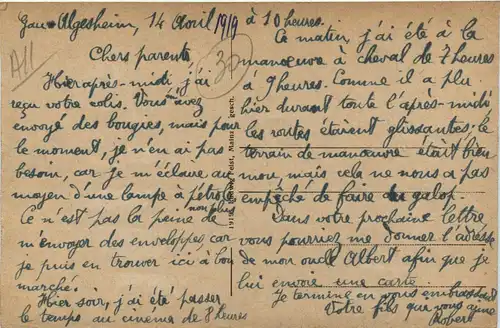 Gau-Algesheim, 14 Avril 1919 à 10 heures.
Chers parents
Hier après-midi j'ai
reçu votre colis. Vous avez
envoyé des bougies, mais pour
le moment, je n'en ai pas
besoin, car je m'éclaire au
moyen d'une lampe à pétrole
Ce n'est pas la peine de non plus
m'envoyer des enveloppes, car
je puis en trouver ici à bon
marché.
Hier soir, j'ai été passer
le temps au cinéma de 8 heures
Ce matin, j'ai été à la
manœuvre à cheval de 7 heures
à 9 heures. Comme il a plu
hier durant toute l'après-midi
les routes étaient glissantes : le
terrain de manœuvre était bien
mou, mais cela ne nous a pas
empêché de faire du galop.
Dans votre prochaine lettre
vous pourriez me donner l'adresse
de mon oncle Albert afin que je
lui envoie une carte.
Je termine en vous embrassant
Votre fils qui vous aime
Robert
A11
30
Ludwig Feist, Mainz gesch.